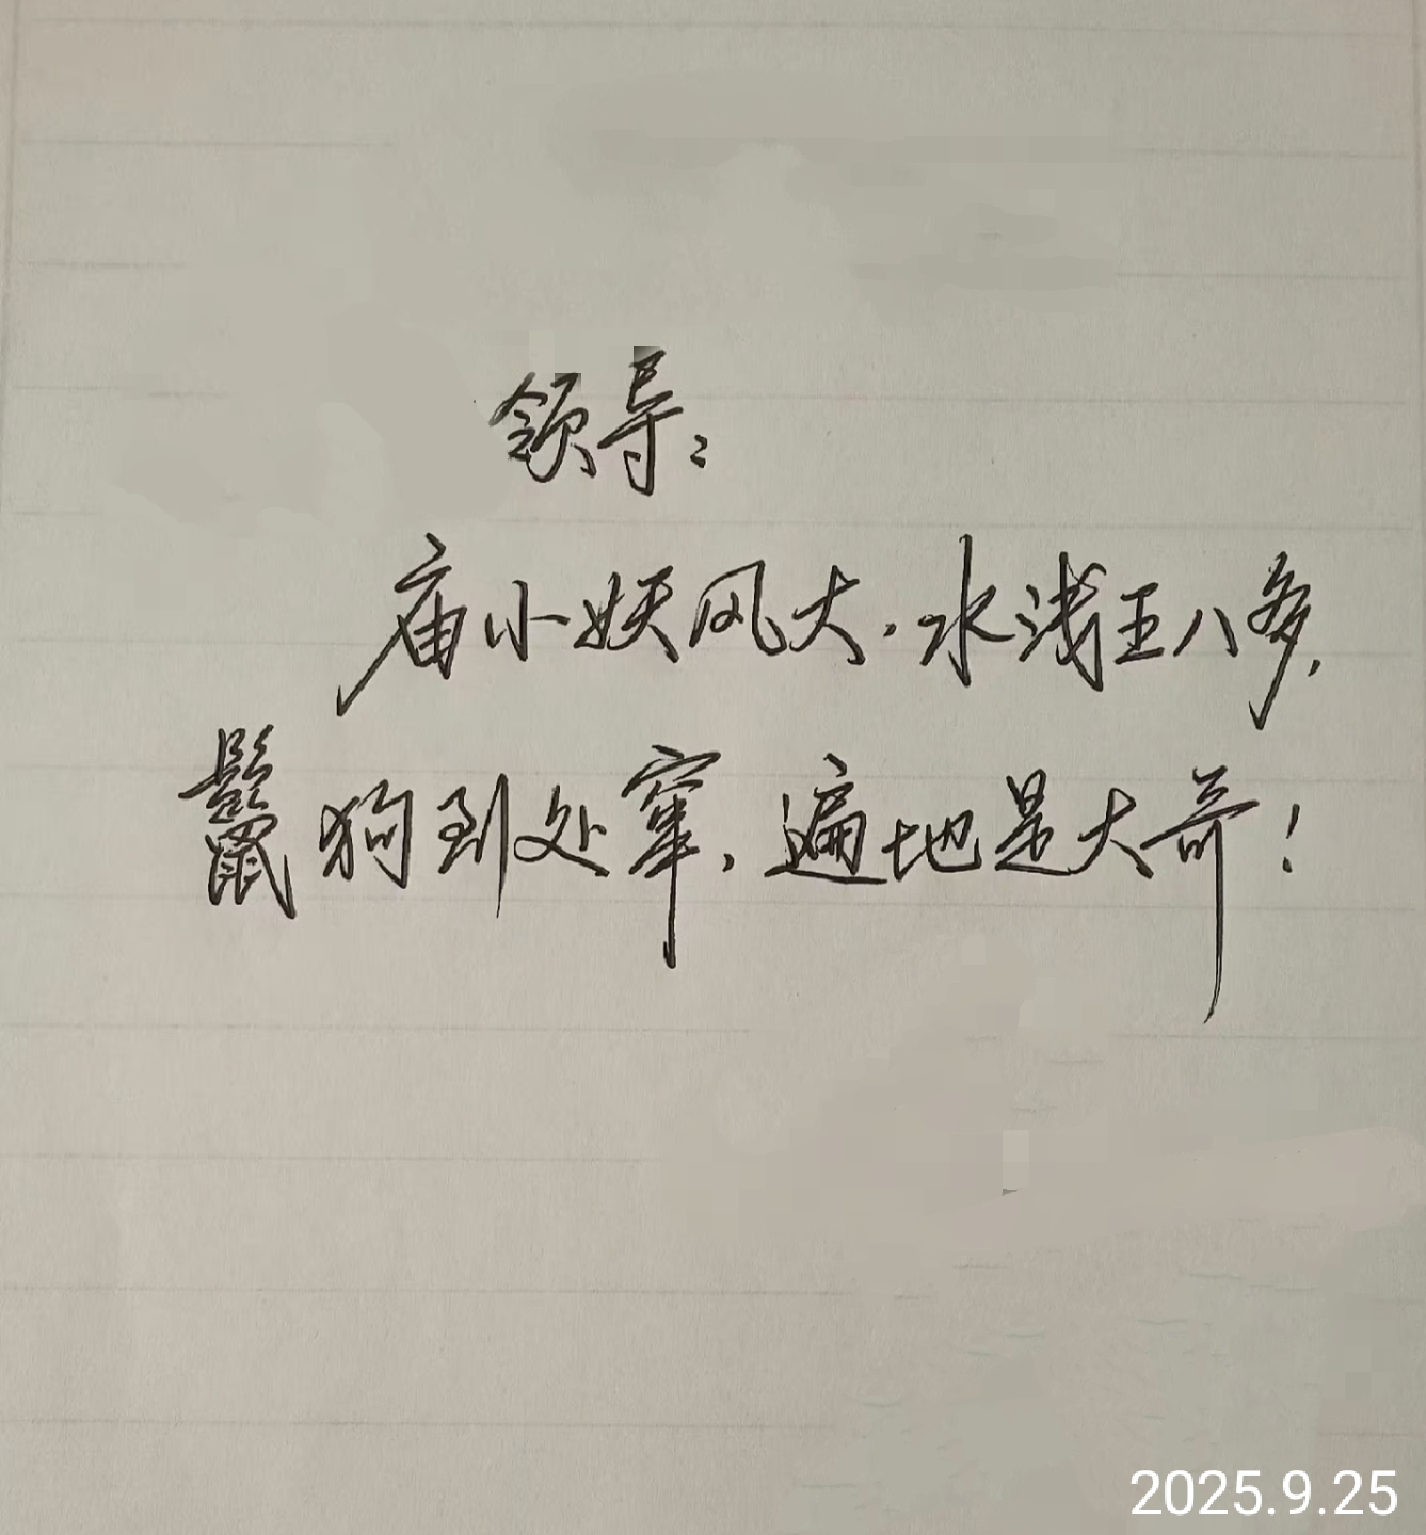 领导：
庙小妖风大．水浅王八多，
鬣狗到处窜，遍地是大哥！
2025.9.25